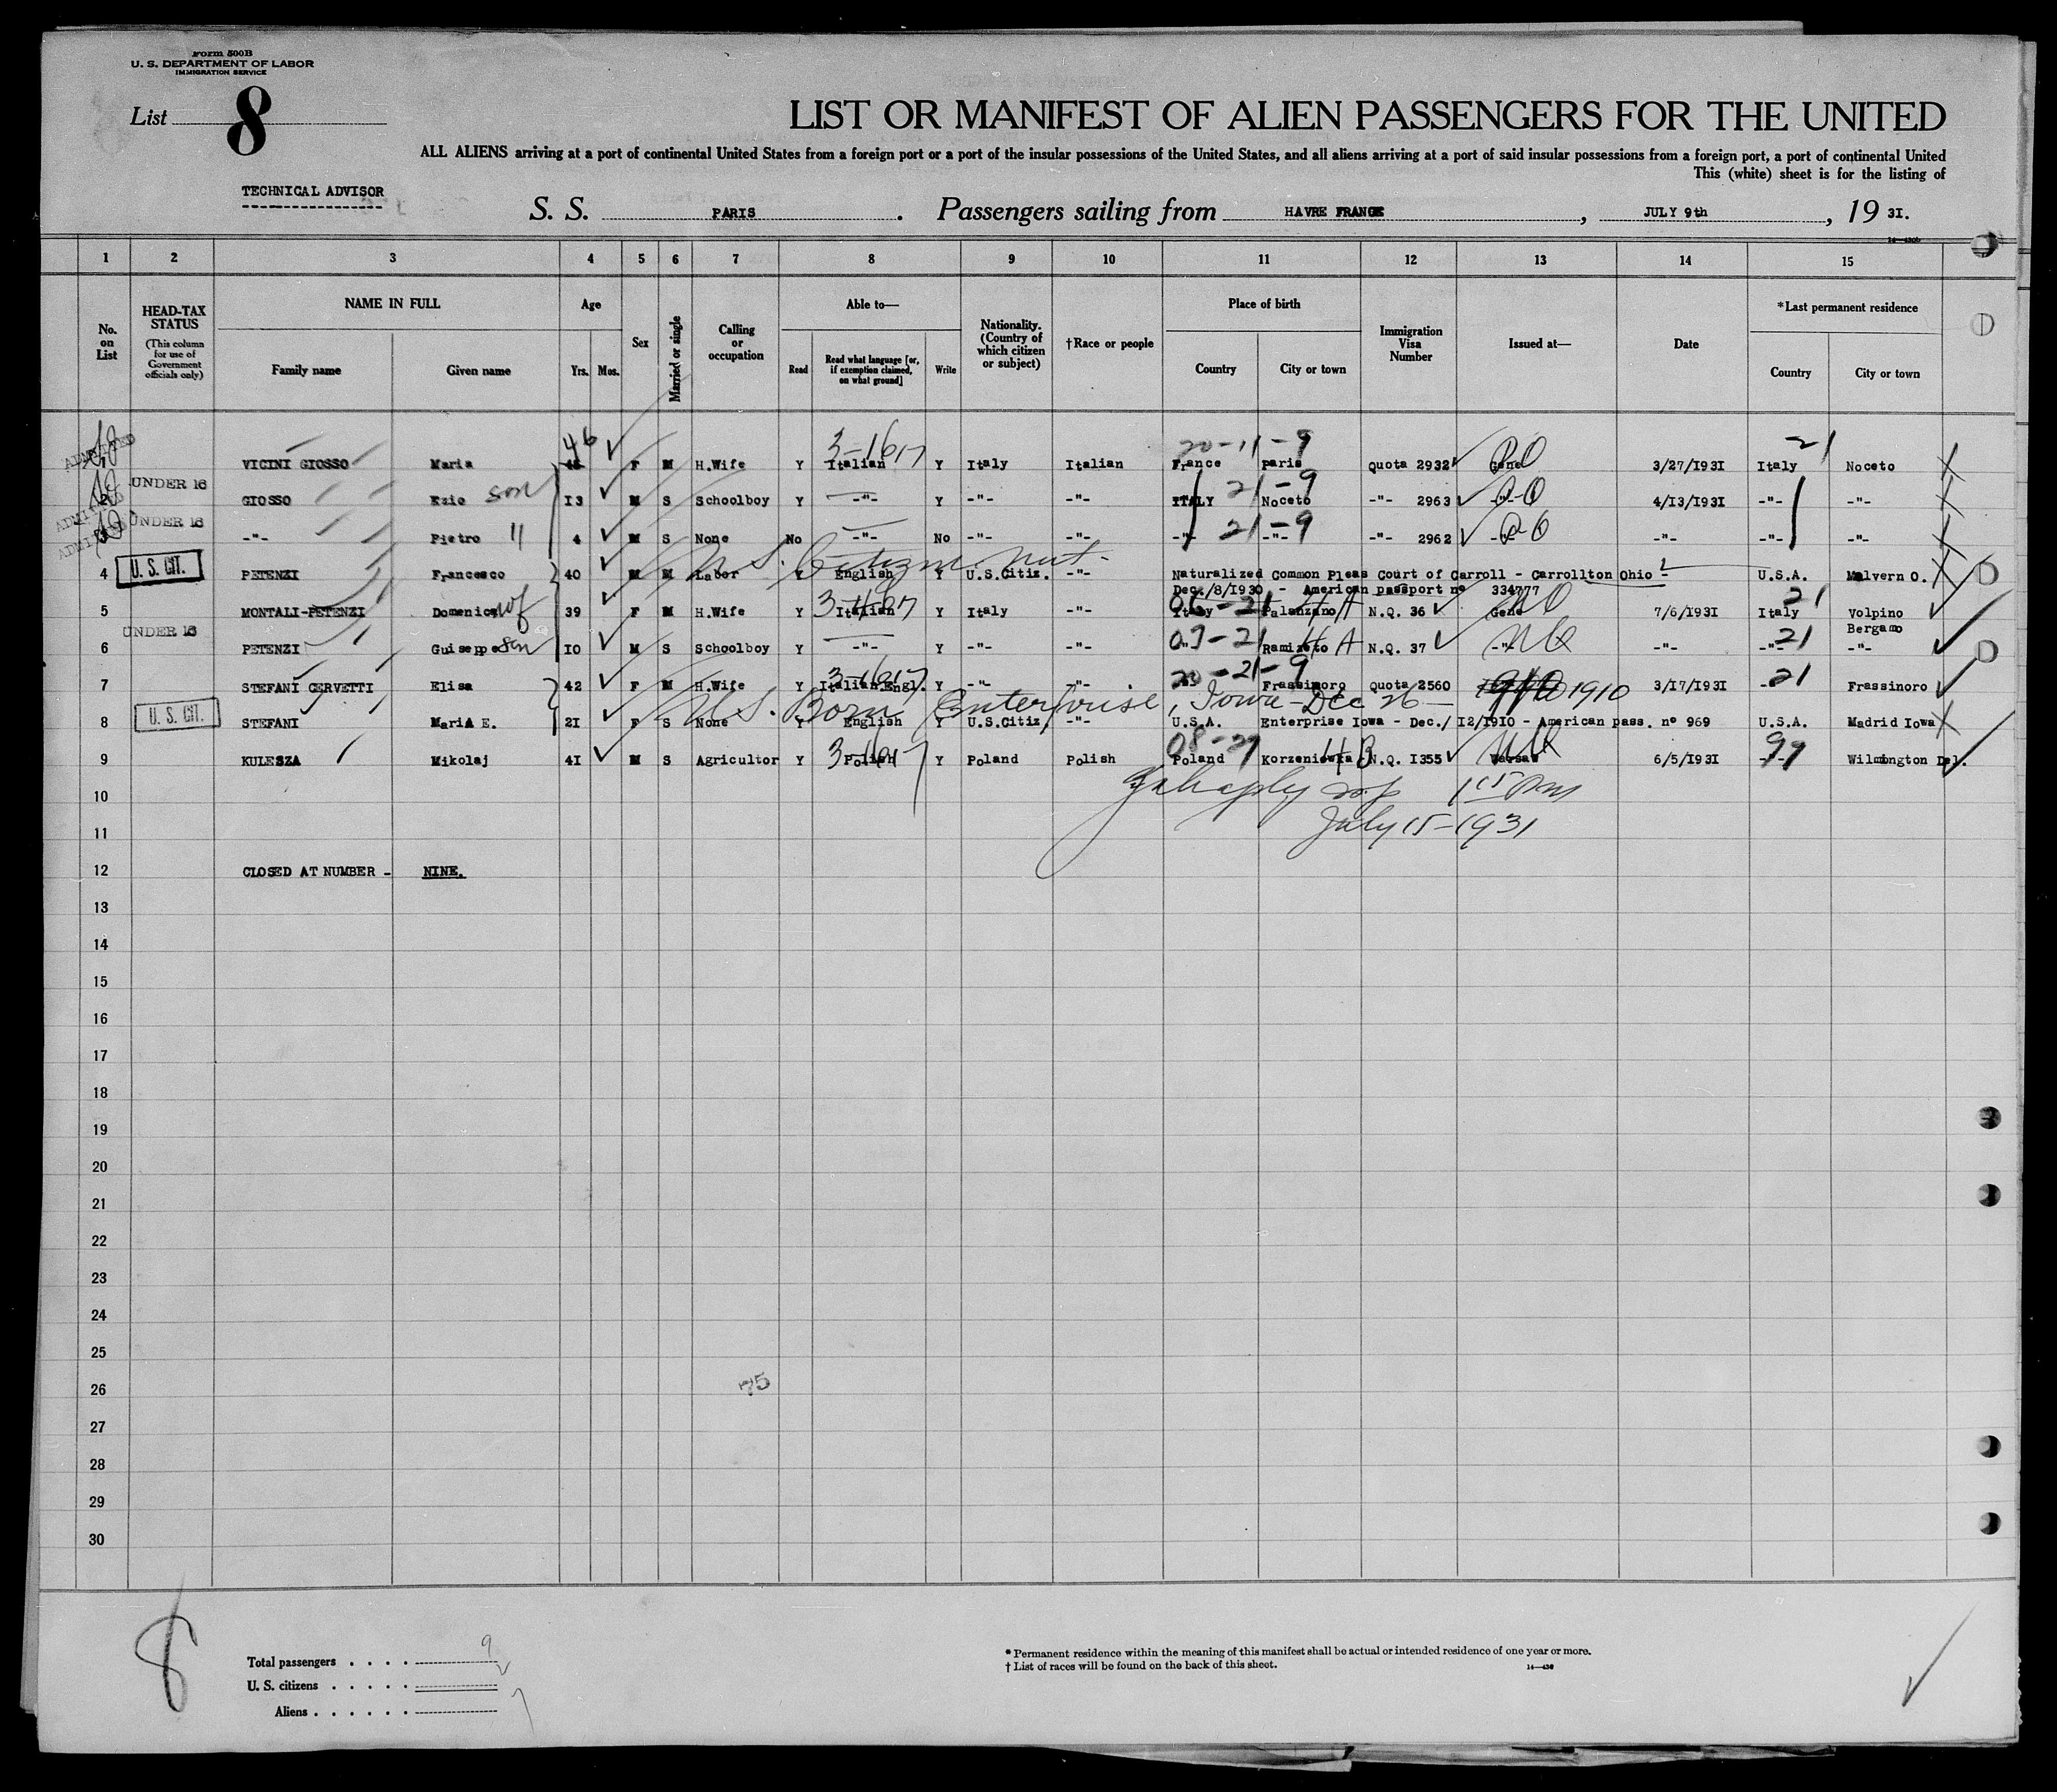 Form 500B
U. S. DEPARTMENT OF LABOR
IMMIGRATION SERVICE
List 8
LIST OR MANIFEST OF ALIEN PASSENGERS FOR THE UNITED
ALL ALIENS arriving at a port of continental United States from a foreign port or a port of the insular possessions of the United States, and all aliens arriving at a port of said insular possessions from a foreign port, a port of continental United
This (white) sheet is for the listing of
TECHNICAL ADVISOR
S. S. PARIS. Passengers sailing from HAVRE FRANCE, JULY 9th, 19 31.
1 2 3 4 5 6 7 8 9 10 11 12 13 14 15
No. on List
HEAD-TAX STATUS (This column for use of Government officials only)
NAME IN FULL Family name Given name
Age Yrs. Mos.
Sex
Married or single
Calling or occupation
Able to— Read Read what language [or, if exemption claimed, on what ground] Write
Nationality. (Country of which citizen or subject)
†Race or people
Place of birth Country City or town
Immigration Visa Number
Issued at—
Date
*Last permanent residence Country City or town
46 3-1617 20-11-9 21
ADMITTED VICINI GIOSSO Maria F M H.Wife Y Italian Y Italy Italian France Paris Quota 2932 Gene 3/27/1931 Italy Noceto
UNDER 16 21-9
ADMITTED 2 GIOSSO Ezio son 13 M S Schoolboy Y -"- Y -"- -"- ITALY Noceto -"- 2963 -"- 4/13/1931 -"- -"-
UNDER 16 21-9
ADMITTED 3 -"- Pietro " 4 M S None No -"- No -"- -"- -"- -"- -"- 2962 -"- -"- -"- -"-
U.S. Citizen nat.
4 U. S. CIT. PETENZI Francesco 40 M M Labor Y English Y U.S.Citiz. -"- Naturalized Common Pleas Court of Carroll - Carrollton Ohio - U.S.A. Malvern O.
Dec./8/1930 - American passport nº 334777
5 MONTALI-PETENZI Domenica wf 39 F M H.Wife Y Italian Y Italy -"- Italy Palanzano N.Q. 36 Gene 7/6/1931 Italy Volpino
UNDER 16 Bergamo
6 PETENZI Guiseppe son 10 M S Schoolboy Y -"- Y -"- -"- -"- Ramizeto N.Q. 37 -"- -"- -"- -"-
3-1617 20-21-9 21
7 STEFANI CERVETTI Elisa 42 F M H.Wife Y Italian Engl. Y -"- -"- Frassinoro Quota 2560 3/17/1931 -"- Frassinoro
U.S. Born Enterprise, Iowa - Dec 26 - 1910
8 U. S. CIT. STEFANI Maria E. 21 F S None Y English Y U.S.Citiz. -"- U.S.A. Enterprise Iowa - Dec./ 12/1910 - American pass. nº 969 U.S.A. Madrid Iowa
08-29 99
9 KULESZA Mikolaj 41 M S Agricultor Y Polish Y Poland Polish Poland Korzeniowka N.Q. 1355 Warsaw 6/5/1931 -"- Wilmington Del.
10
11
July 15-1931
12 CLOSED AT NUMBER - NINE.
13
14
15
16
17
18
19
20
21
22
23
24
25
26 75
27
28
29
30
8
Total passengers 9
U. S. citizens 2
Aliens 7
* Permanent residence within the meaning of this manifest shall be actual or intended residence of one year or more.
† List of races will be found on the back of this sheet.
14—430